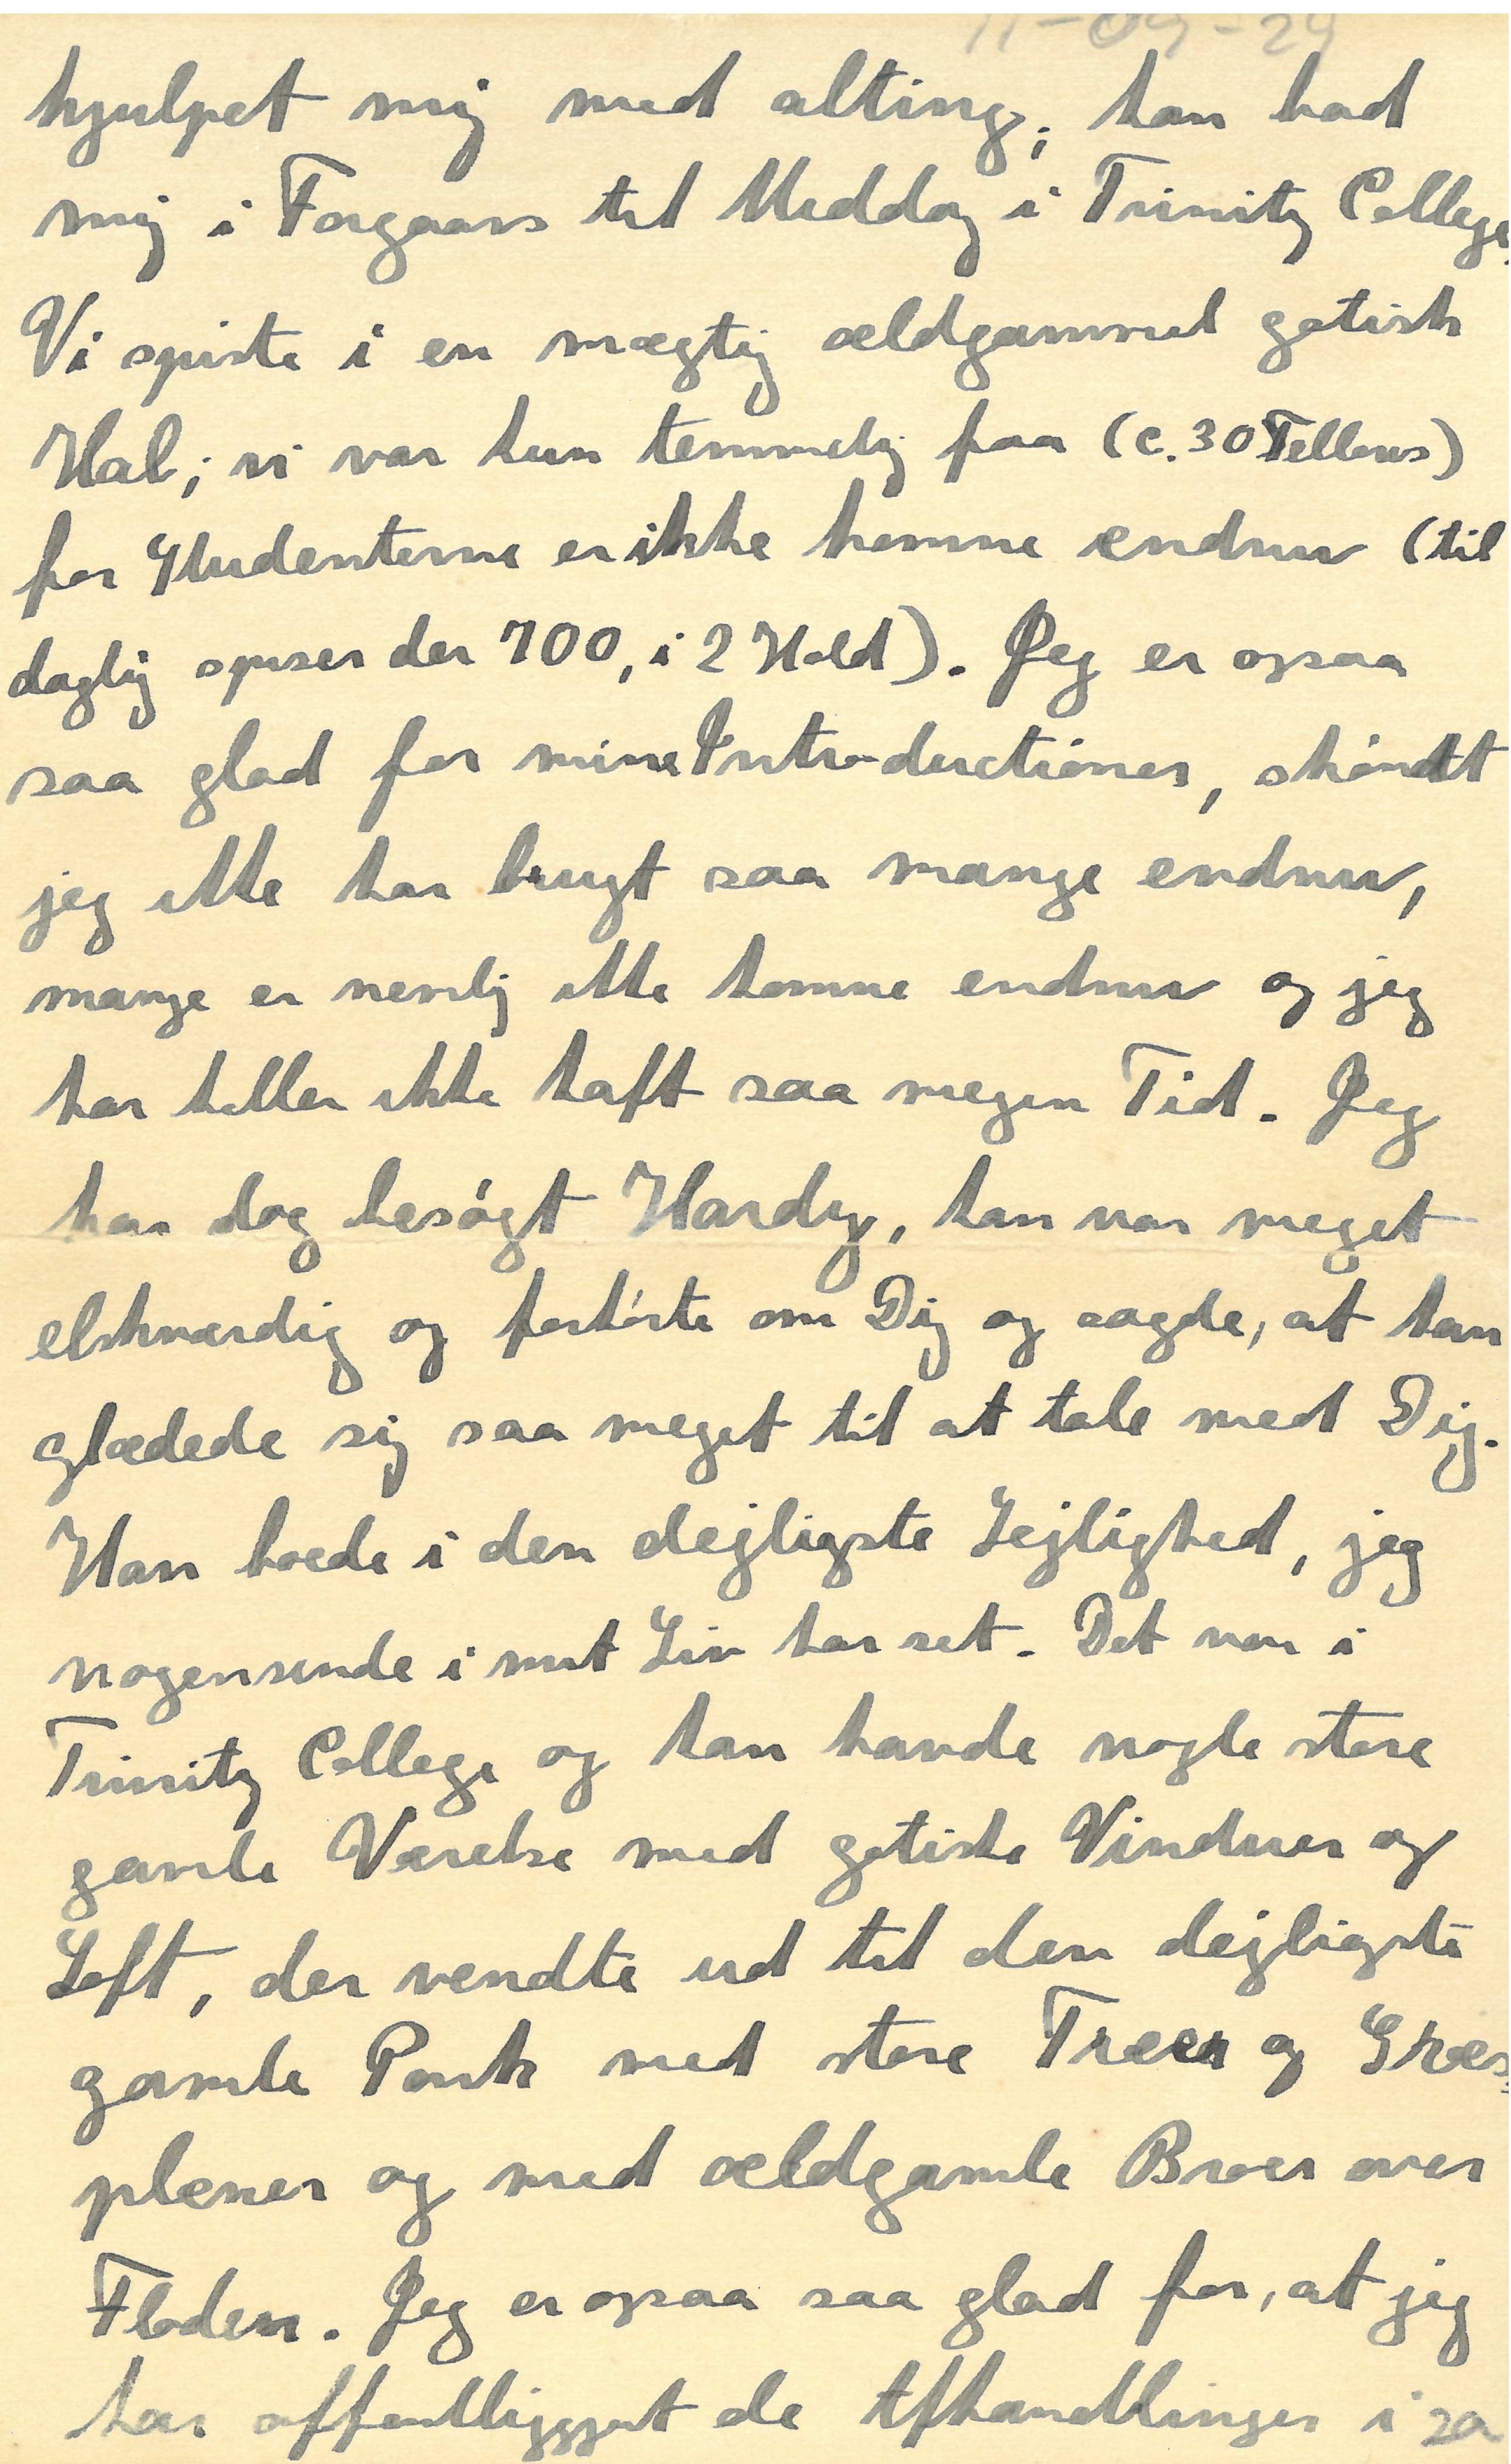 11-09-29
hjulpet mig med alting; han bad
mig i Forgaars til Middag i Trinity College.
Vi spiste i en mægtig ældgammel gotisk
Hal; vi var kun temmelig faa (c. 30 Fellows)
for Studenterne er ikke komne endnu (til
daglig spiser der 700, i 2 Hold). Jeg er ogsaa
saa glad for mine Introductioner, skøndt
jeg ikke har brugt saa mange endnu,
mange er nemlig ikke komne endnu og jeg
har heller ikke haft saa megen Tid. Jeg
har dog besøgt Hardy, han var meget
elskværdig og forhørte om Dig og sagde, at han
glædede sig saa meget til at tale med Dig.
Han boede i den dejligste Lejlighed, jeg
nogensinde i mit Liv har set. Det var i
Trinity College og han havde nogle store
gamle Værelse med gotiske Vinduer og
Loft, der vendte ud til den dejligste
gamle Park med store Træer og Græs-
plæner og med ældgamle Broer over
Floden. Jeg er ogsaa saa glad for, at jeg
har offentliggjort de Afhandlinger i sa